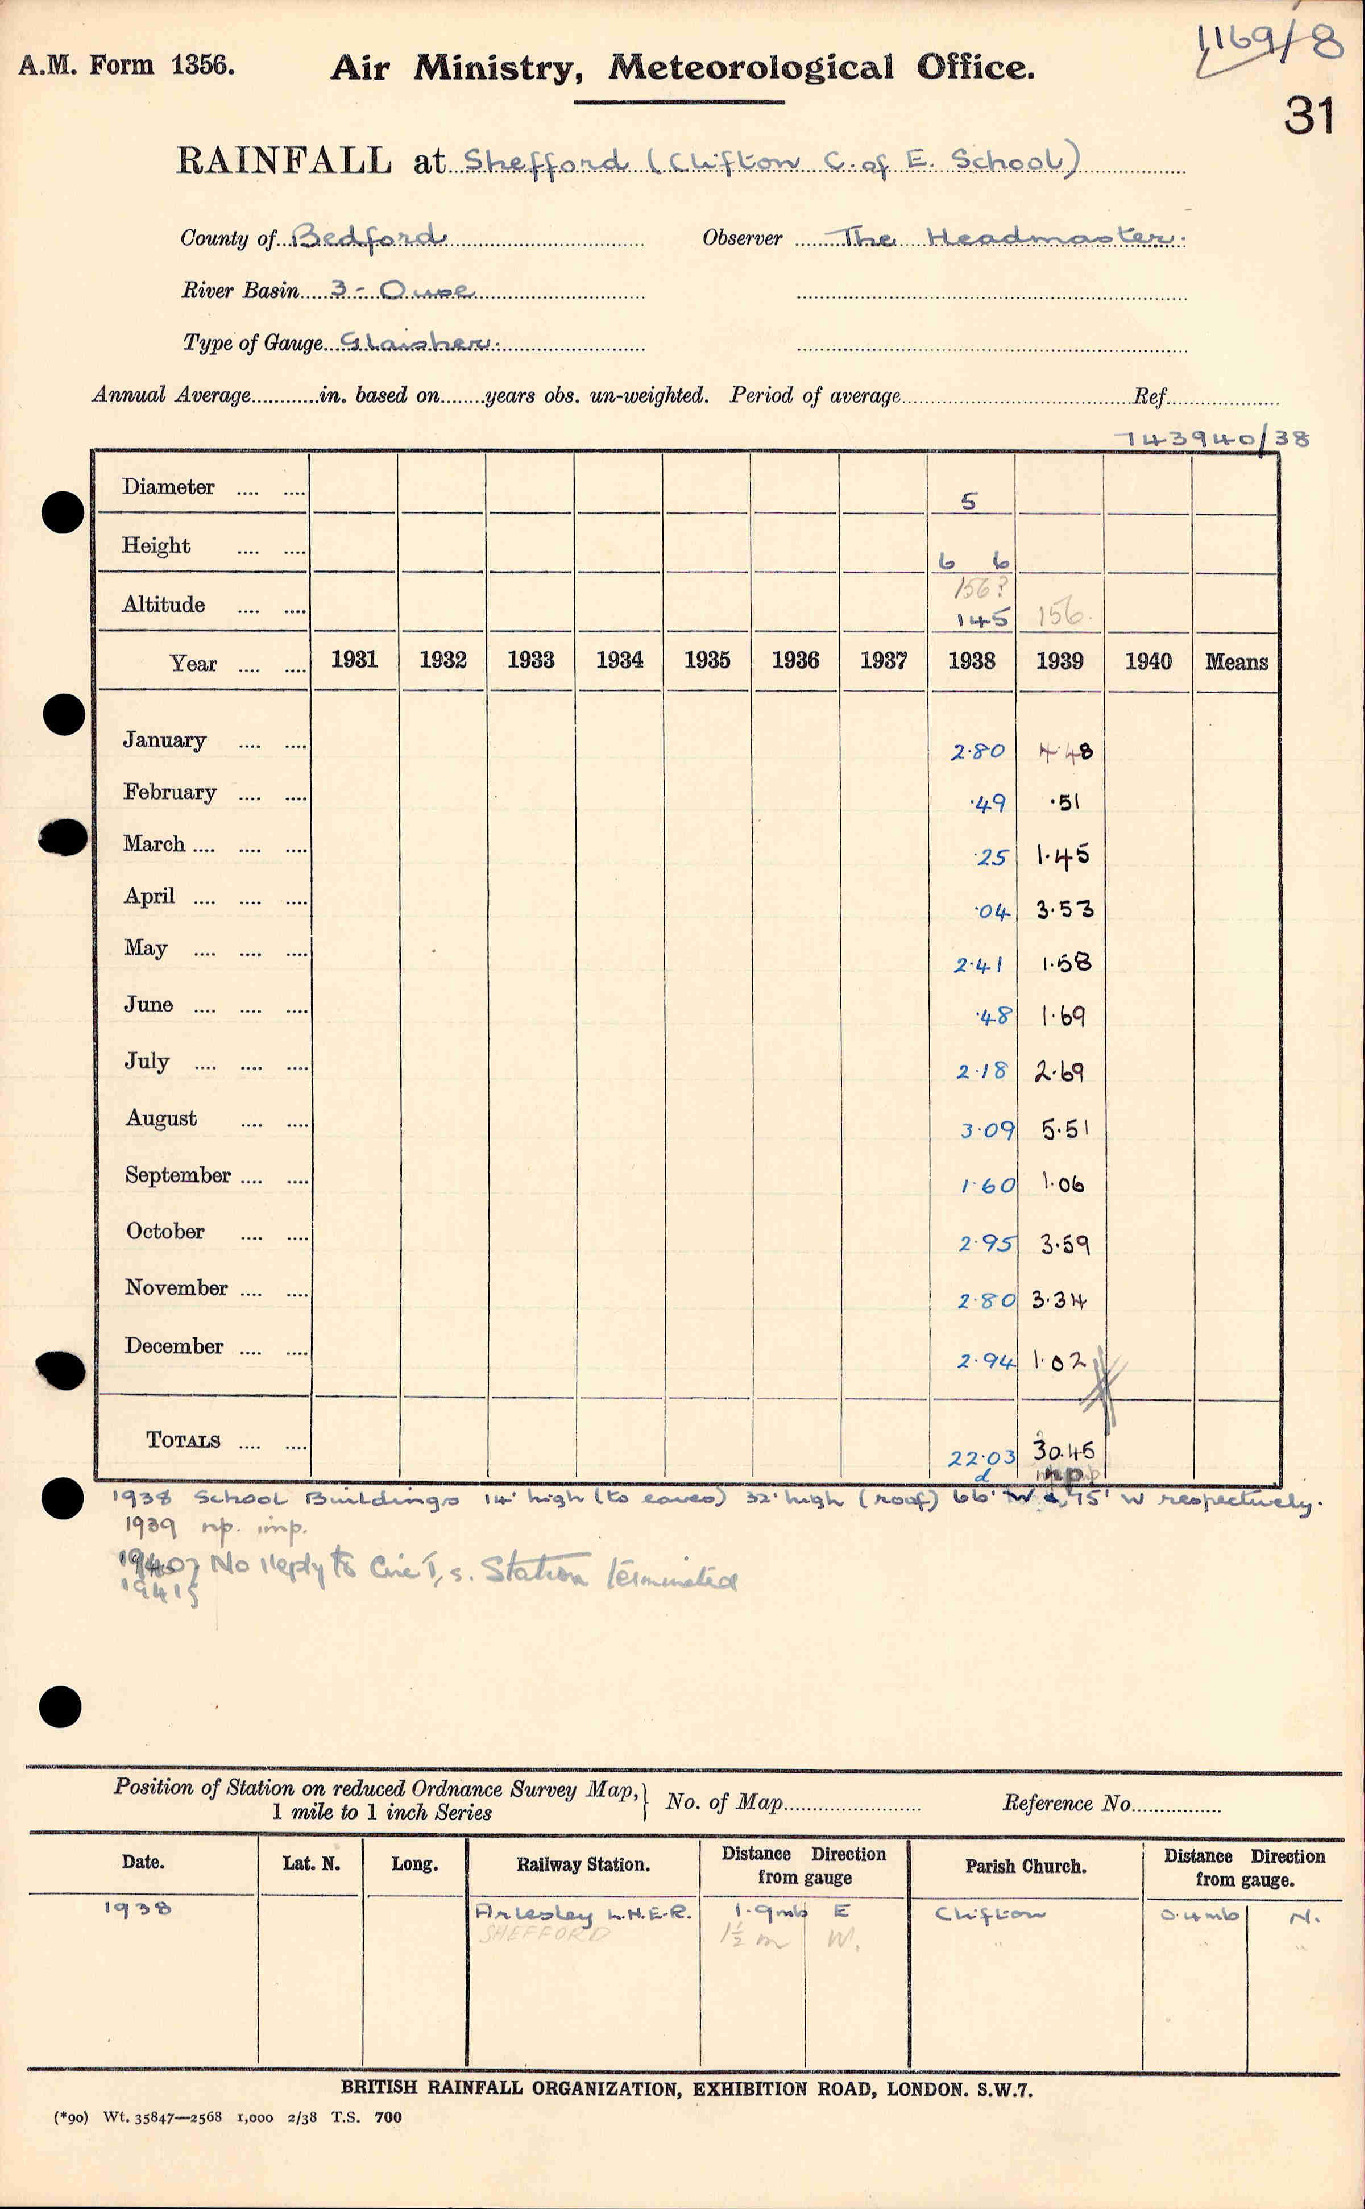 1169/8
A.M. Form 1356. Air Ministry, Meteorological Office.
31
RAINFALL at Shefford (Clifton C. of E. School)
County of Bedford Observer The Headmaster.
River Basin 3 - Ouse
Type of Gauge Glaisher.
Annual Average............in. based on........years obs. un-weighted. Period of average.......... Ref..........
743940/38
Diameter .... .... 5
Height .... .... 6 6
156?
Altitude .... .... 145 156.
Year .... .... 1931 1932 1933 1934 1935 1936 1937 1938 1939 1940 Means
January .... .... 2·80 4·48
February .... .... ·49 ·51
March .... .... .... ·25 1·45
April .... .... .... ·04 3·53
May .... .... .... 2·41 1·58
June .... .... .... ·48 1·69
July .... .... .... 2·18 2·69
August .... .... 3·09 5·51
September .... .... 1·60 1·06
October .... .... 2·95 3·59
November .... .... 2·80 3·34
December .... .... 2·94 1·02
TOTALS .... .... 22·03 30.45
d np
1938 School Buildings 14' high (to eaves) 32' high (roof) 66' W & 75' W respectively.
1939 np. imp.
1940} No reply to Circ I, s. Station terminated
1941}
Position of Station on reduced Ordnance Survey Map,} No. of Map............ Reference No............
1 mile to 1 inch Series
Date. Lat. N. Long. Railway Station. Distance Direction from gauge Parish Church. Distance Direction from gauge.
1938 Arlesley L.N.E.R. 1·9 mls E Clifton 0.4 mls N.
SHEFFORD 1½ m W. " " "
BRITISH RAINFALL ORGANIZATION, EXHIBITION ROAD, LONDON. S.W.7.
(*90) Wt. 35847—2568 1,000 2/38 T.S. 700